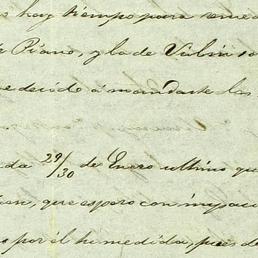 hay tiempo para reme
Piano, y la de Violin se
decido á mandarte las
da 29/30 de Enero ultimo qu
que espero con impaci
por él tu medida, pues de